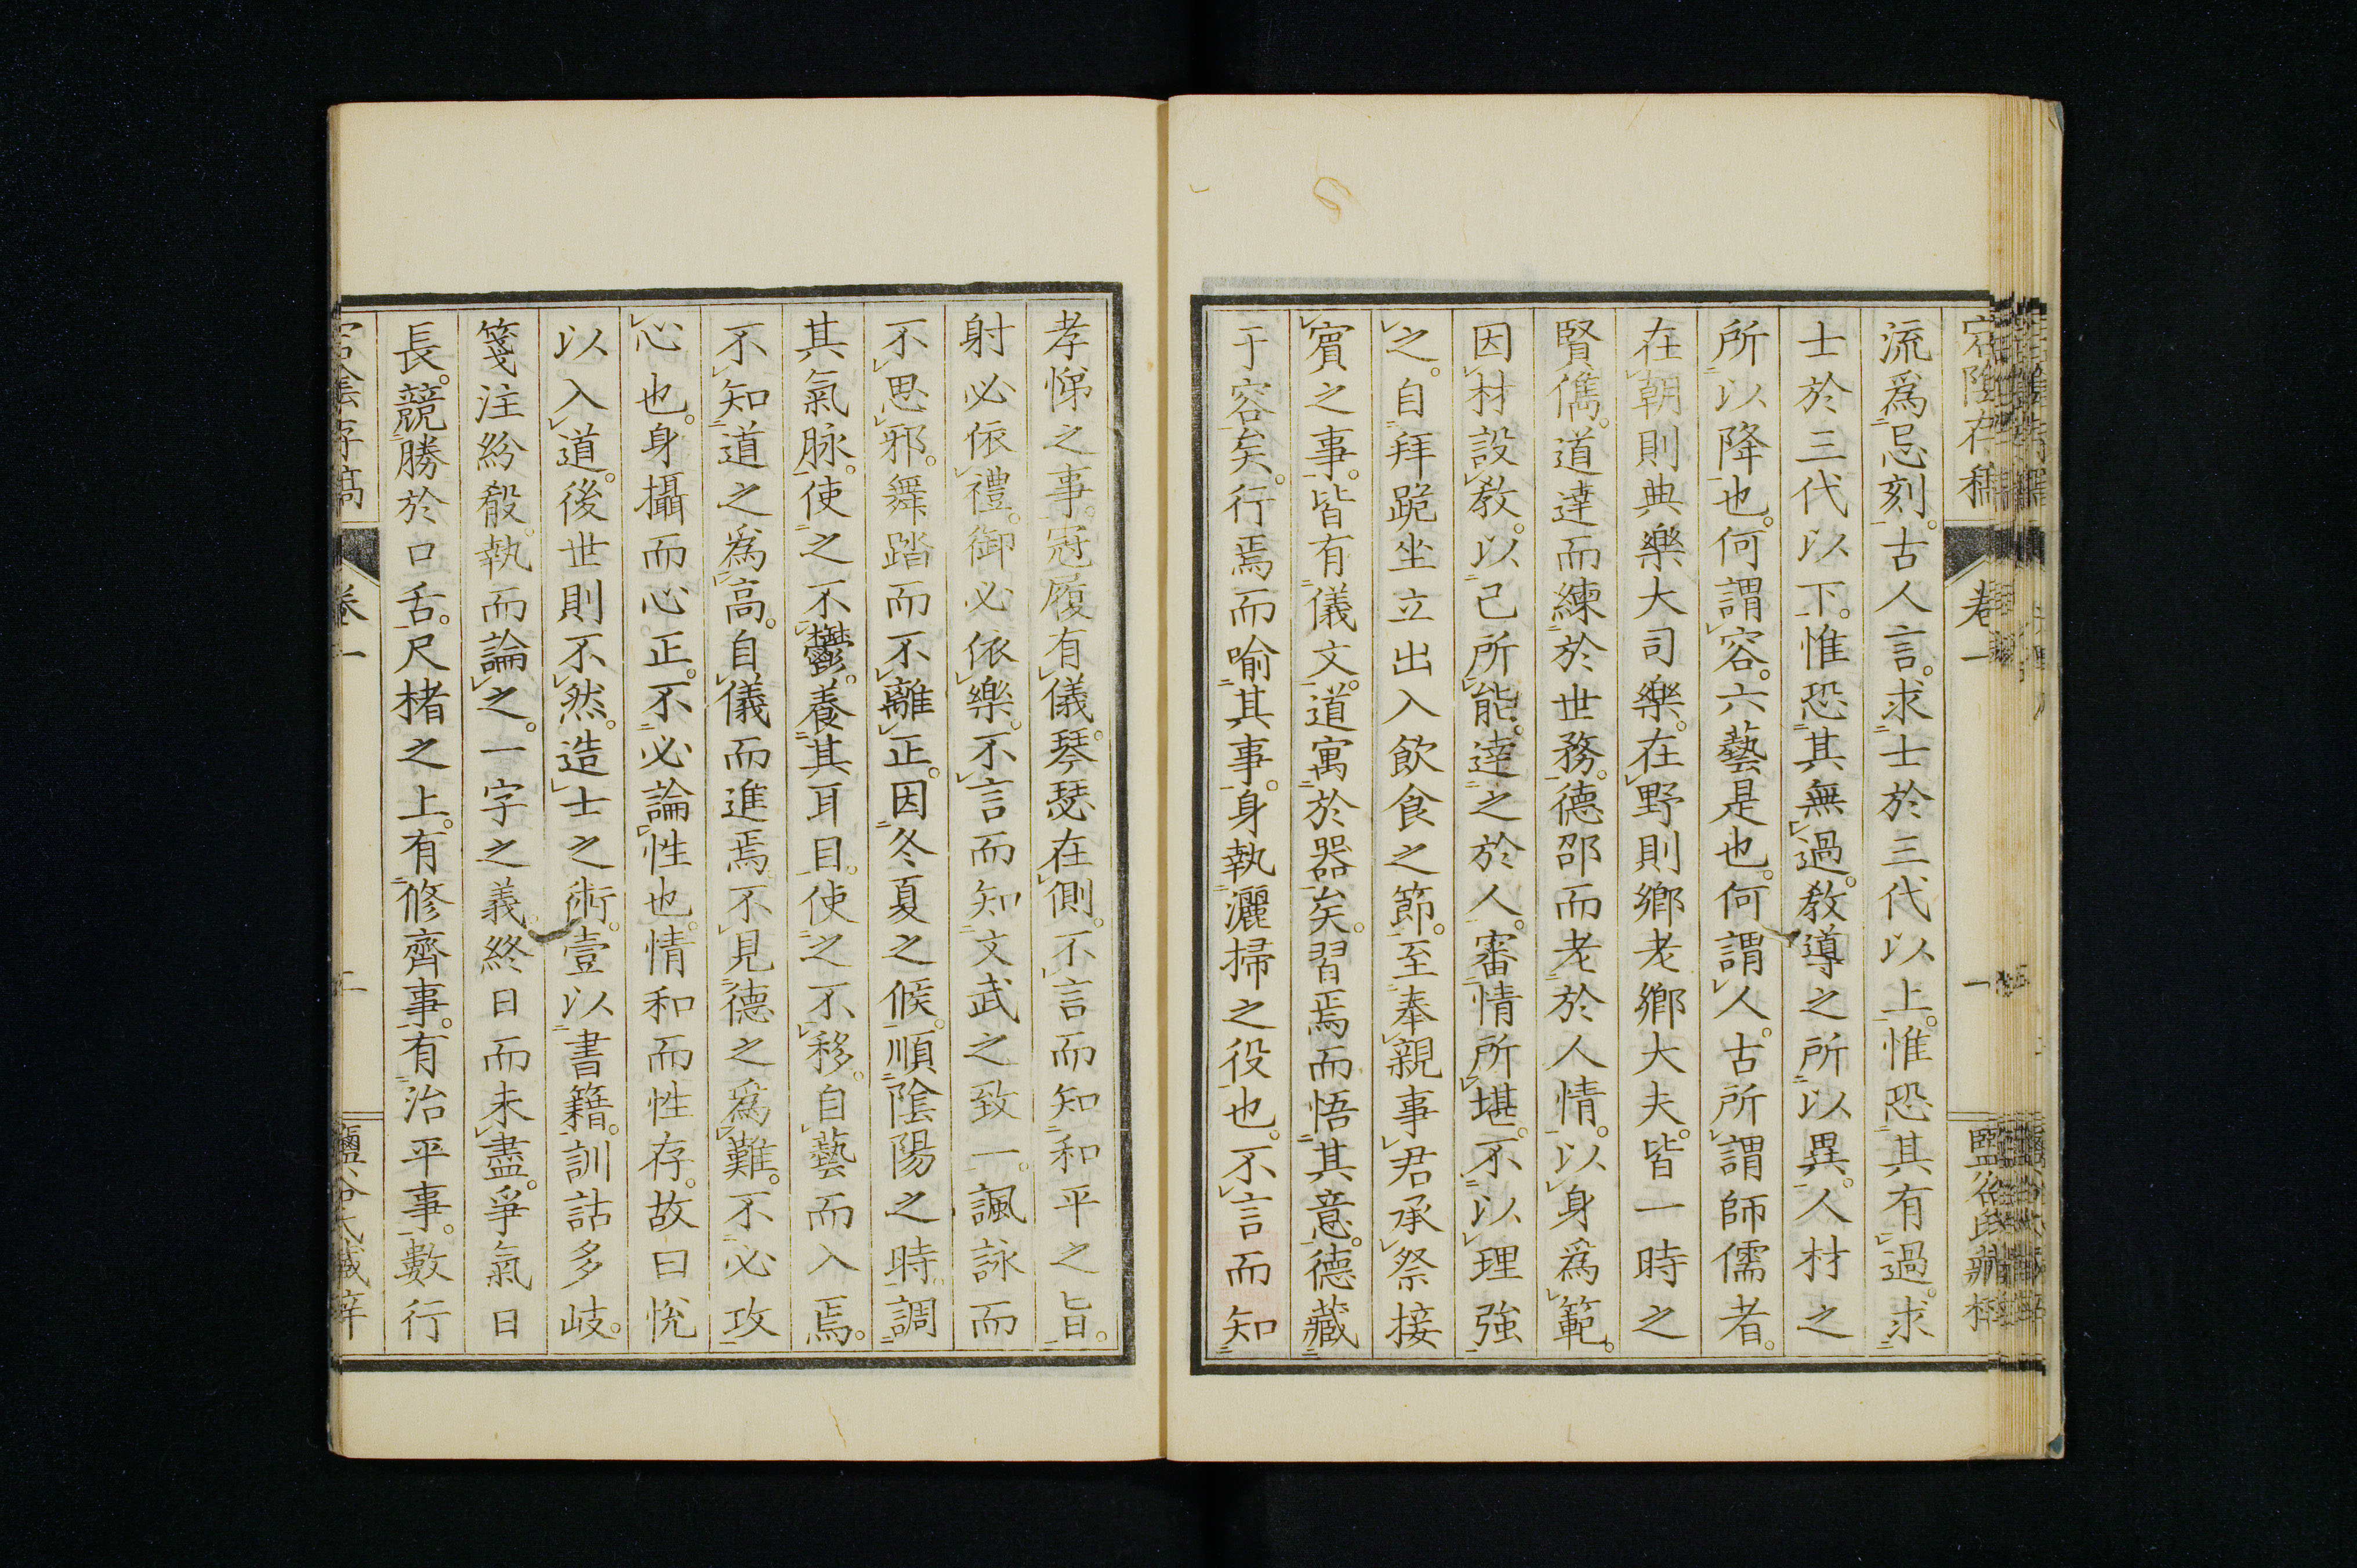 宕陰存稿 卷一 一
流爲忌刻。古人言。求士於三代以上。惟恐其有過。求
士於三代以下。惟恐其無過。教導之所以異。人材之
所以降也。何謂容。六藝是也。何謂人。古所謂師儒者。
在朝則典樂大司樂。在野則鄉老鄉大夫。皆一時之
賢儁。道達而練於世務。德邵而老於人情。以身爲範。
因材設教。以己所能。達之於人。審情所堪。不以理強
之。自拜跪坐立出入飲食之節。至奉親事君承祭接
賓之事。皆有儀文。道寓於器矣。習焉而悟其意。德藏
于容矣。行焉而喻其事。身執灑掃之役也。不言而知
孝悌之事。冠履有儀。琴瑟在側。不言而知和平之旨。
射必依禮。御必依樂。不言而知文武之致一。諷詠而
不思邪。舞蹈而不離正。因冬夏之候。順陰陽之時。調
其氣脉。使之不鬱。養其耳目。使之不移。自藝而入焉。
不知道之爲高。自儀而進焉。不見德之爲難。不必攻
心也。身攝而心正。不必論性也。情和而性存。故曰悅
以入道。後世則不然。造士之術。壹以書籍。訓詁多岐。
箋注紛殽。執而論之。一字之義。終日而未盡。爭氣日
長。競勝於口舌。尺楮之上。有修齊事。有治平事。數行
宕陰存稿 卷一